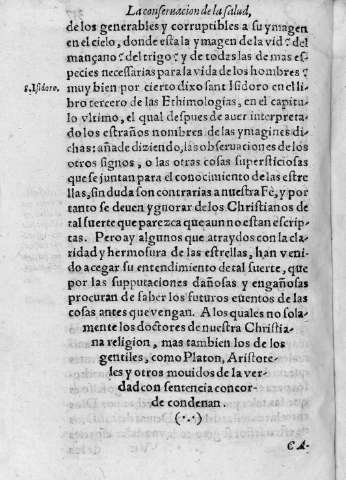 La conseruacion de la salud,
de los generables y corruptibles a su ymagen
en el cielo, donde esta la ymagen de la vid? del
mançano? del trigo? y de todas las demas es-
pecies necessarias para la vida de los hombres?
s. Isidoro.
muy bien por cierto dixo sant Isidoro en el li
bro tercero de las Ethimologias, en el capitu
lo vltimo, el qual despues de auer interpreta-
do los estraños nombres de las ymagines di-
chas: añade diziendo, las obseruaciones de los
otros signos, o las otras cosas superstíciosas
que se juntan para el conocimiento de las estre
llas, sin duda son contrarias a nuestra Fe, y por
tanto se deuen ygnorar de los Christianos de
tal suerte que parezca que aun no estan escrip-
tas. Pero ay algunos que atraydos con la cla-
ridad y hermosura de las estrellas, han veni-
do a cegar su entendimiento de tal suerte, que
por las supputaciones dañosas y engañosas
procuran de saber los futuros euentos de las
cosas antes que vengan. A los quales no sola-
mente los doctores de nuestra Christia-
na religion, mas tambien los de los
gentiles, como Platon, Aristote-
les y otros mouidos de la ver-
dad con sentencia concor-
de condenan.
(∴)
CA-